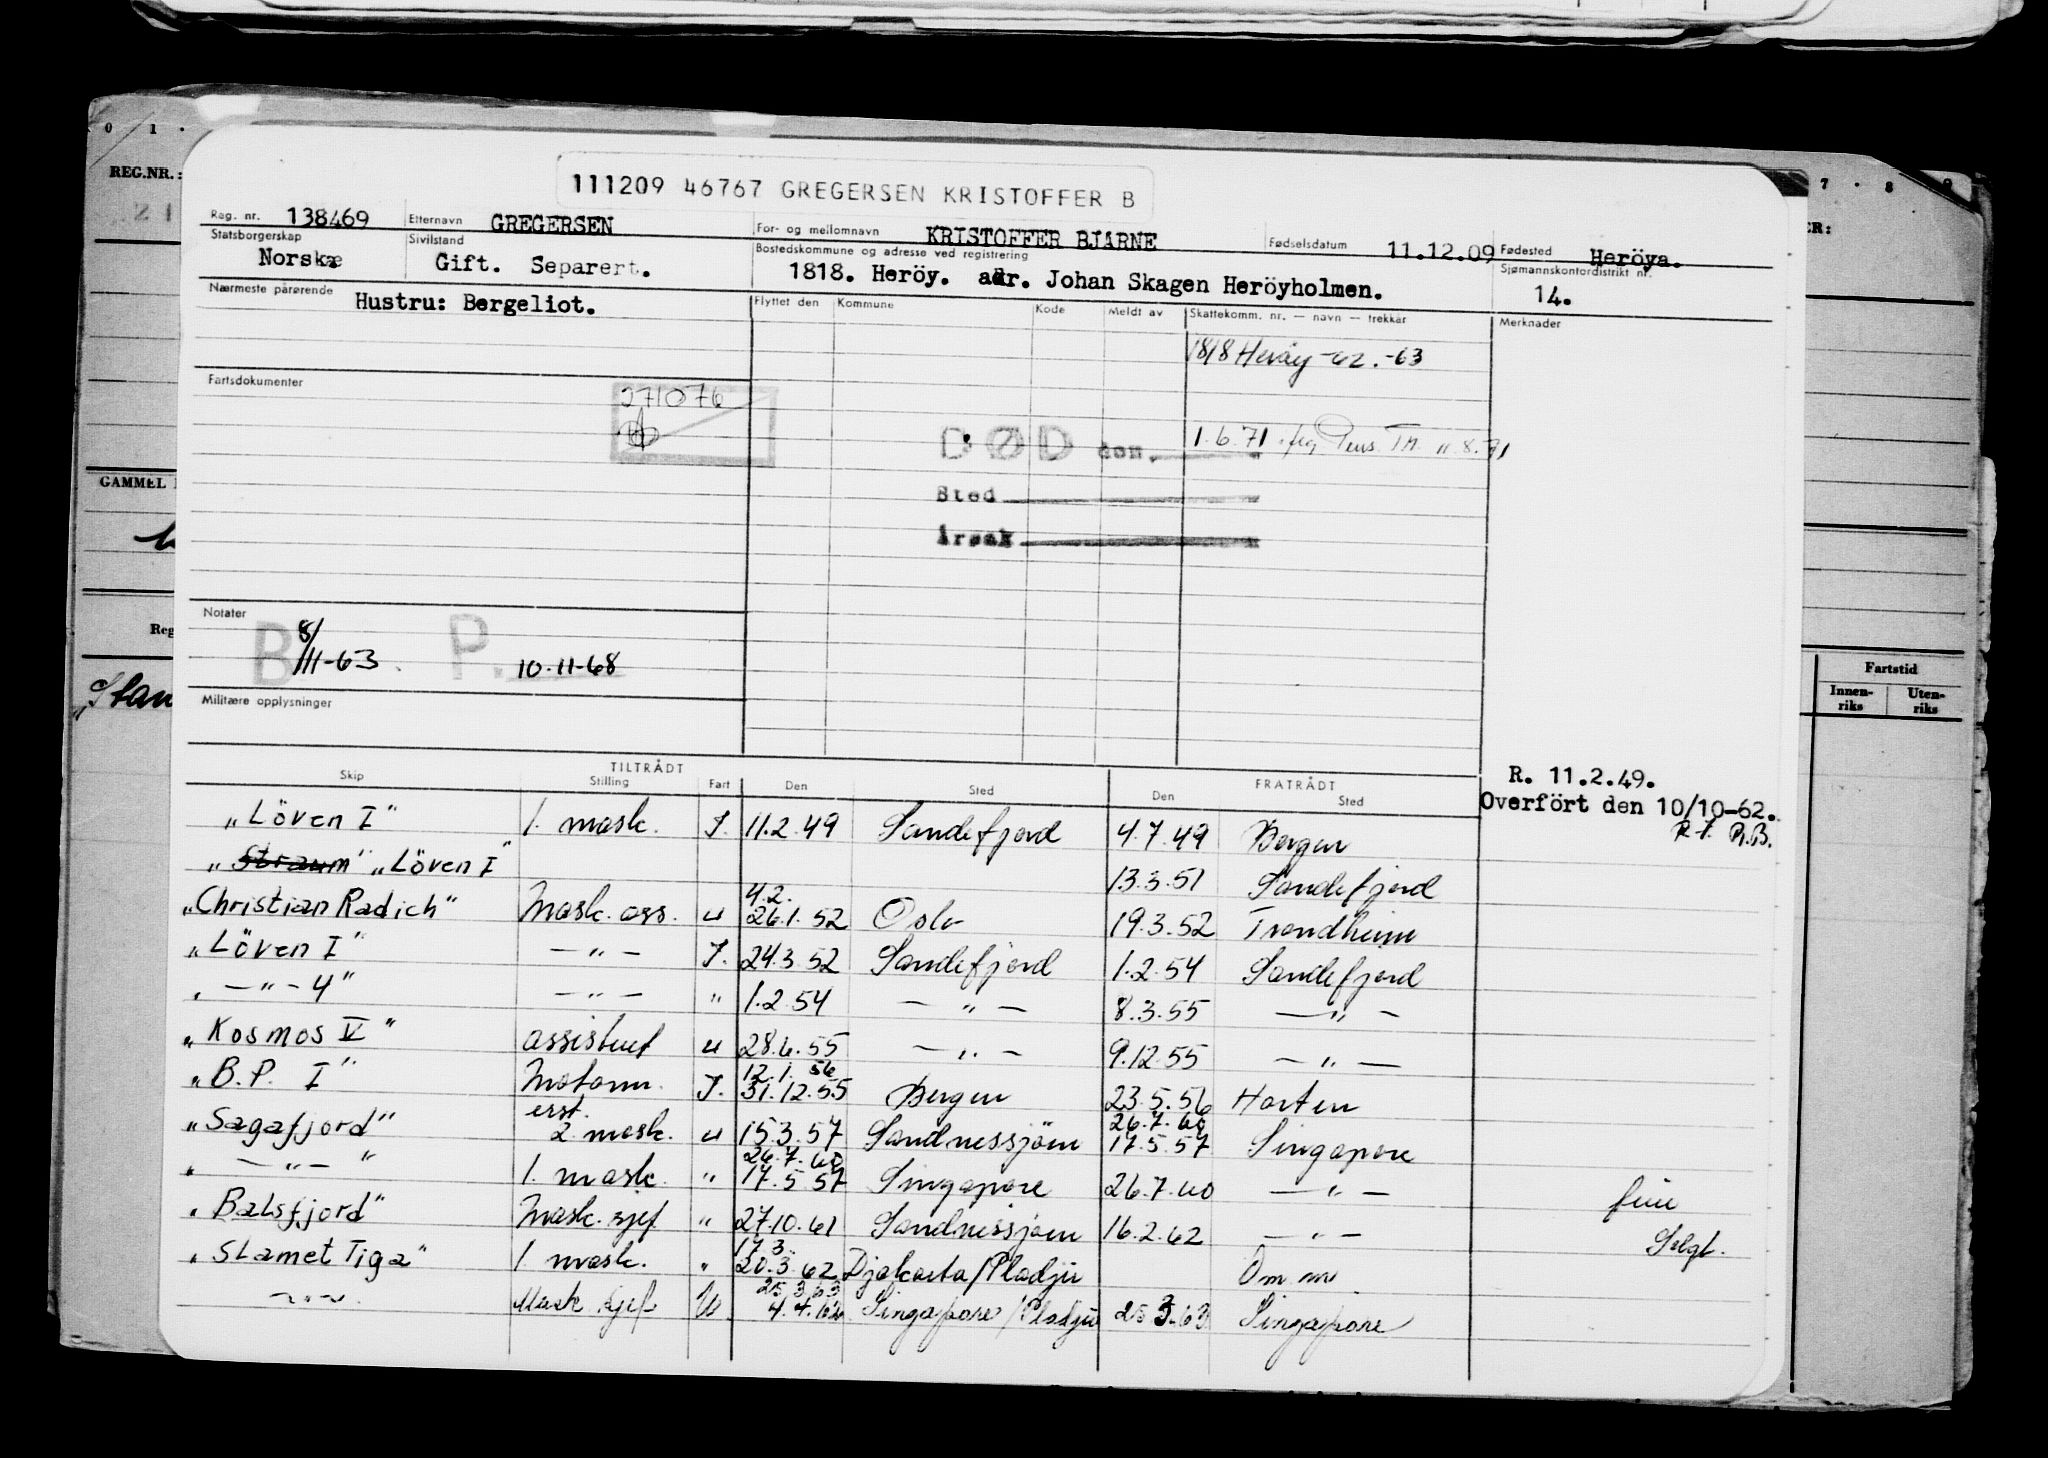 0 1 .
7 . 8 . 9
REG.NR.:
ER:
111209 46767 GREGERSEN KRISTOFFER B
Reg. nr. 138469 Etternavn GREGERSEN For- og mellomnavn KRISTOFFER BJARNE Fødselsdatum 11.12.09 Fødested Heröya.
Statsborgerskap Norsk Sivilstand Gift. Separert. Bostedskommune og adresse ved registrering 1818. Heröy. adr. Johan Skagen Heröyholmen. Sjømannskontordistrikt nr. 14.
Nærmeste pårørende Hustru: Bergeliot. Flyttet den Kommune Kode Meldt av Skattekomm. nr. — navn — trekkår Merknader
1818 Heröy -62. -63
Fartsdokumenter
271076
DØD den 1.6.71. Pens. TM. 8.71
Sted
Årsak
GAMMEL
Notater
B 8/III-63. P. 10-11-68
Reg
Militære opplysninger
Fartstid
Innen-riks Uten-riks
TILTRÅDT FRATRÅDT
Skip Stilling Fart Den Sted Den Sted
R. 11.2.49.
Overfört den 10/10-62.
R.B.
„Löven I" 1. mask. I. 11.2.49 Sandefjord 4.7.49 Bergen
„Straum" „Löven I" 13.3.51 Sandefjord
4.2.
„Christian Radich" Mask. ass. u 26.1.52 Oslo 19.3.52 Trondheim
„Löven I" — „ — I. 24.3.52 Sandefjord 1.2.54 Sandefjord
„ — „ — 4" — „ — „ 1.2.54 — „ — 8.3.55 — „ —
„Kosmos V" assistent u 28.6.55 — „ — 9.12.55 — „ —
12.1.56
„B.P. I" Motorm. I. 31.12.55 Bergen 23.5.56 Horten
erst. 26.7.60
„Sagafjord" 2 mask. u 15.3.57 Sandnessjöen 17.5.57 Singapore
26.7.60
„ — „ — " 1. mask. „ 17.5.57 Singapore 26.7.60 — „ —
„Balsfjord" Mask. sjef „ 27.10.61 Sandnessjöen 16.2.62 — „ — Solgt.
17.3.
„Slamet Tiga" 1 mask. „ 20.3.62 Djakarta/Pladju Om mö
25.3.63
— „ — Mask. sjef U 4.4.62 Singapore/Pladju 25.3.63 Singapore